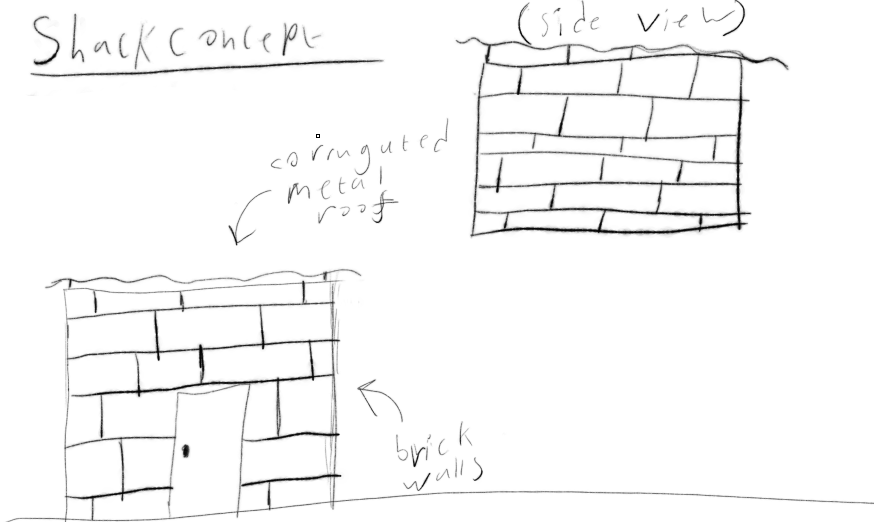 Shack concept
(side view)
corrugated
metal
roof
brick
walls